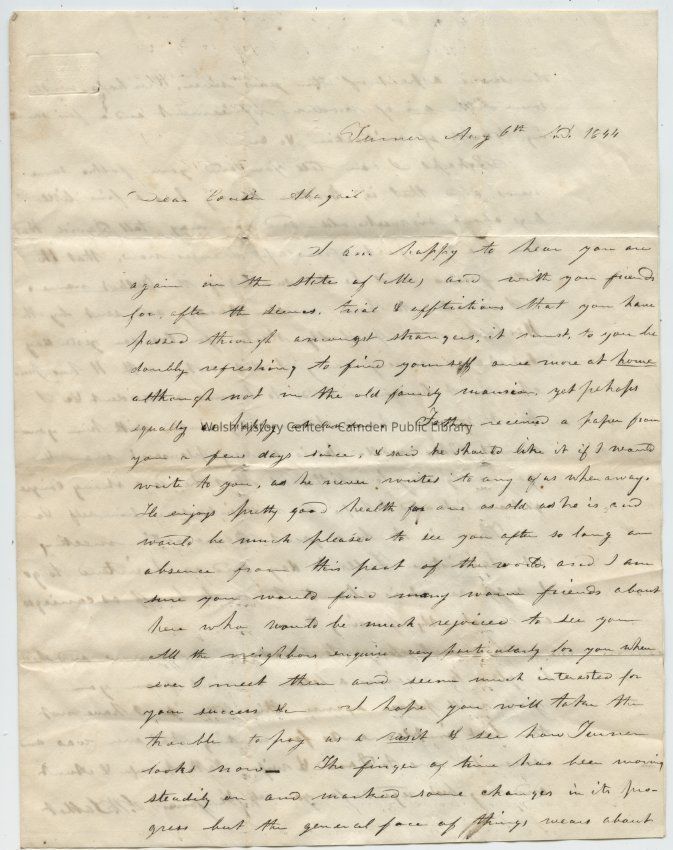 Turner Aug 6th AD. 1844
Dear Cousin Abagail
I am happy to hear you are
again in the state of Me, and with you friends
for after the scenes, trial & afflictions that you have
passed through amongst strangers, it must, to you be
doubly refreshing to find yourself once more at home
although not in the old family mansion, yet pehaps
equally as happy Father received a paper from
Welsh History Center - Camden Public Library
you a few days since, & said he should like it if I would
write to you, as he never writes to any of us when away.
He enjoys pretty good health for one as old as he is and
would be much pleased to see you after so long an
absence from this part of the world, and I am
sure you would find many warm friends about
here who would be much rejoiced to see you
All the neighbors enquire very particularly for you when
ever I meet them and seem much interested for
your success &c I hope you will take the
trouble to pay us a visit & see how Turner
looks now— The finger of time has been moving
steadily on and marked some changes in its pro-
gress but the general face of things wears about